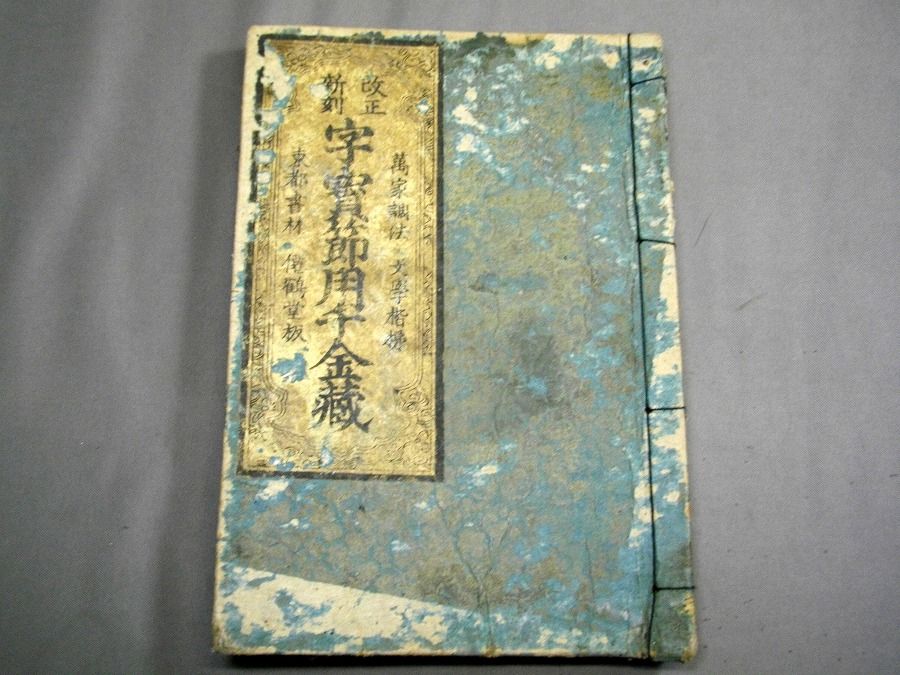 改正
新刻
萬家調法 文學楷梯
字寶節用千金藏
東都書林 僊鶴堂板